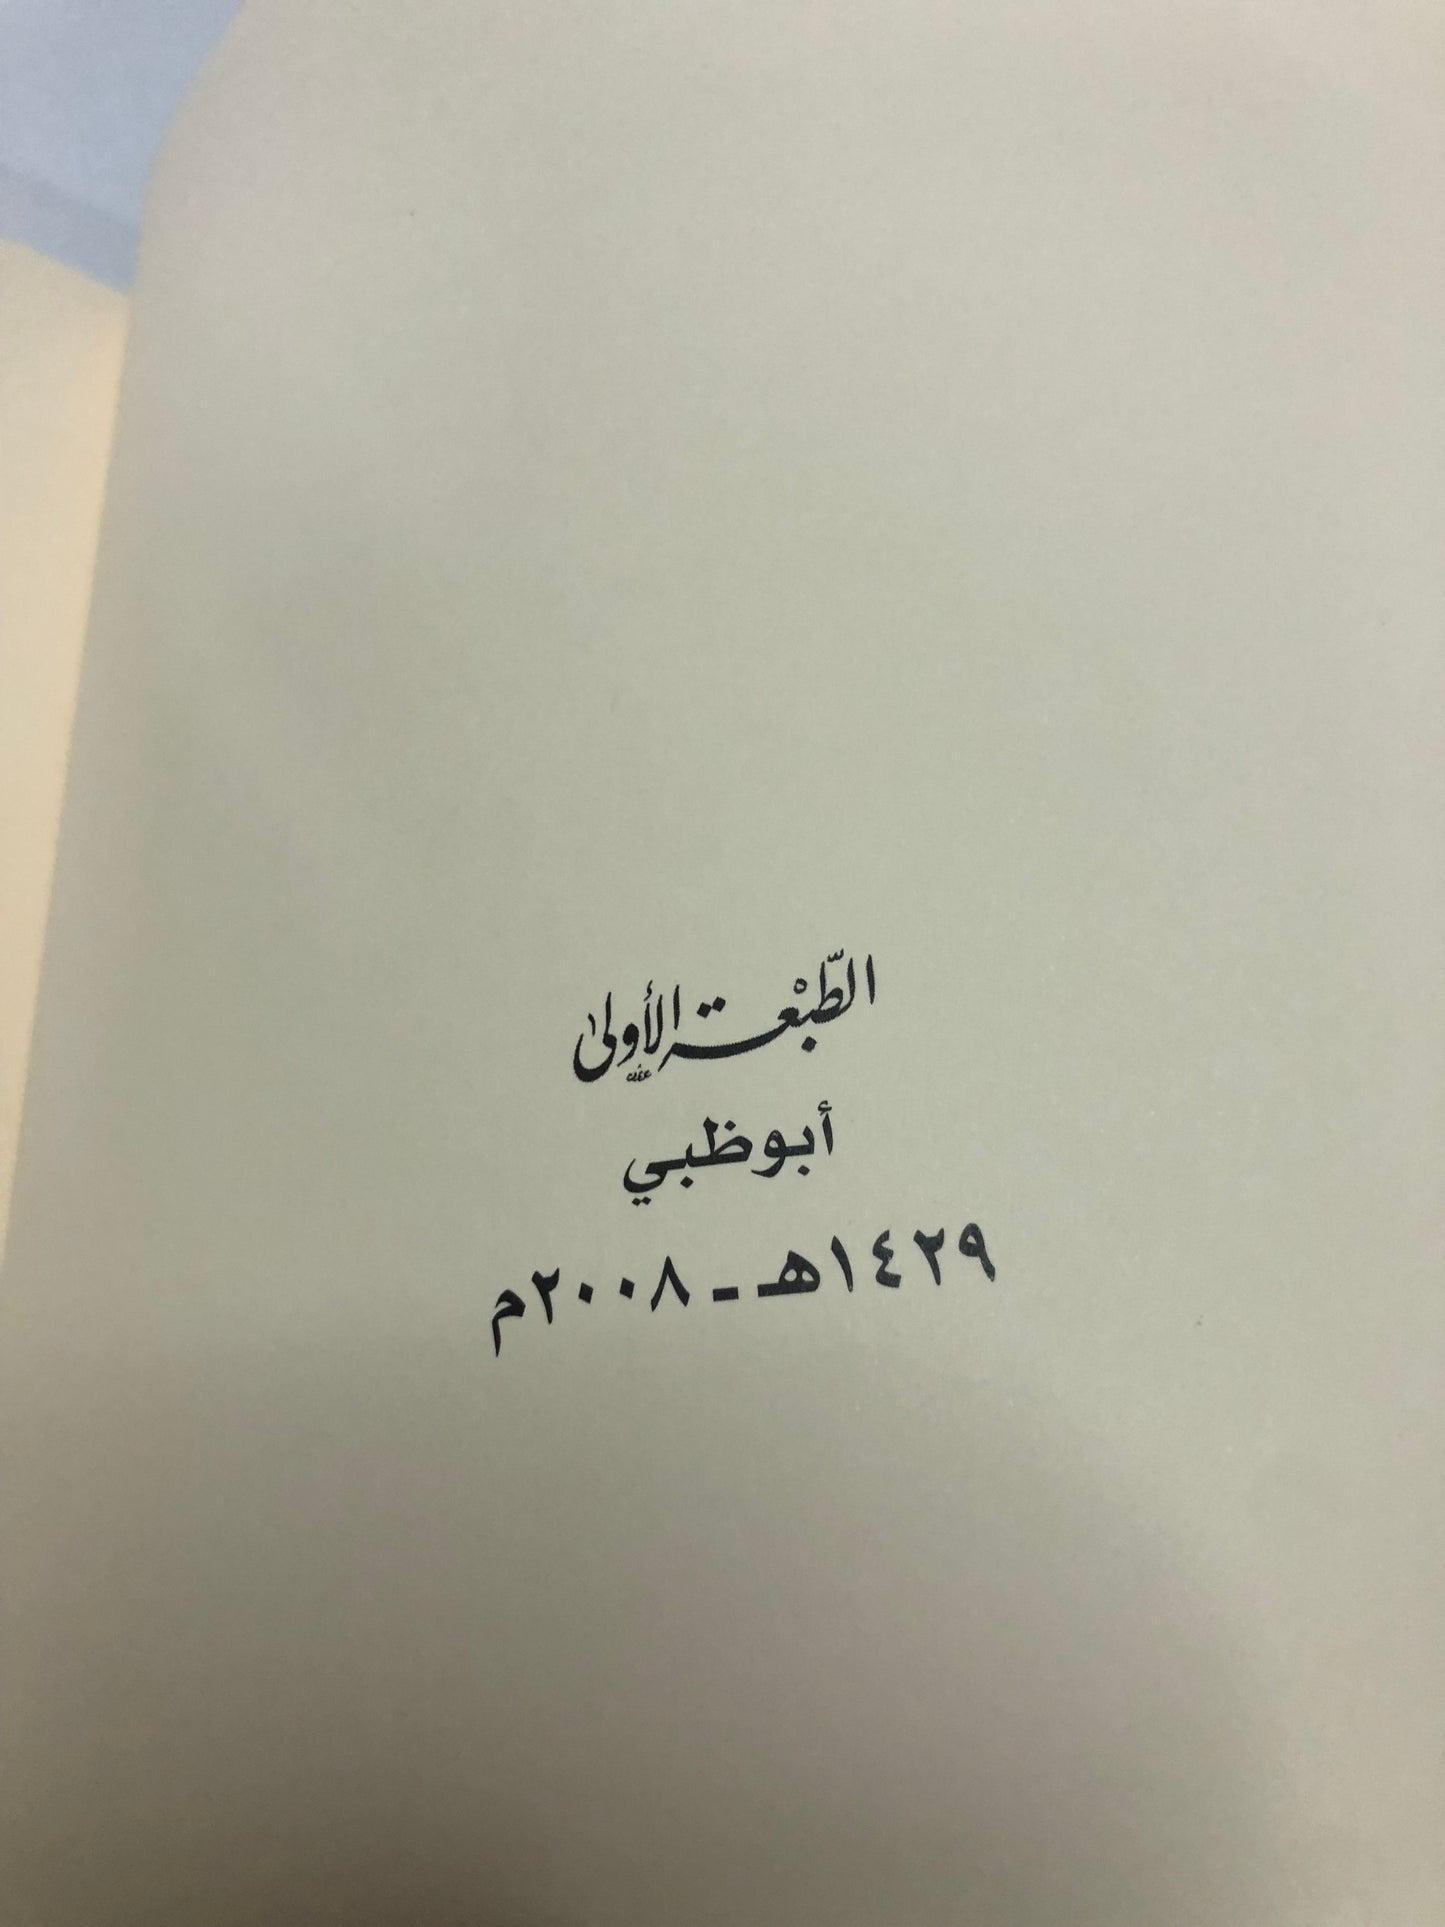 الطَّبْعة الأُولىٰ
أبوظبي
١٤٢٩هـ - ٢٠٠٨م